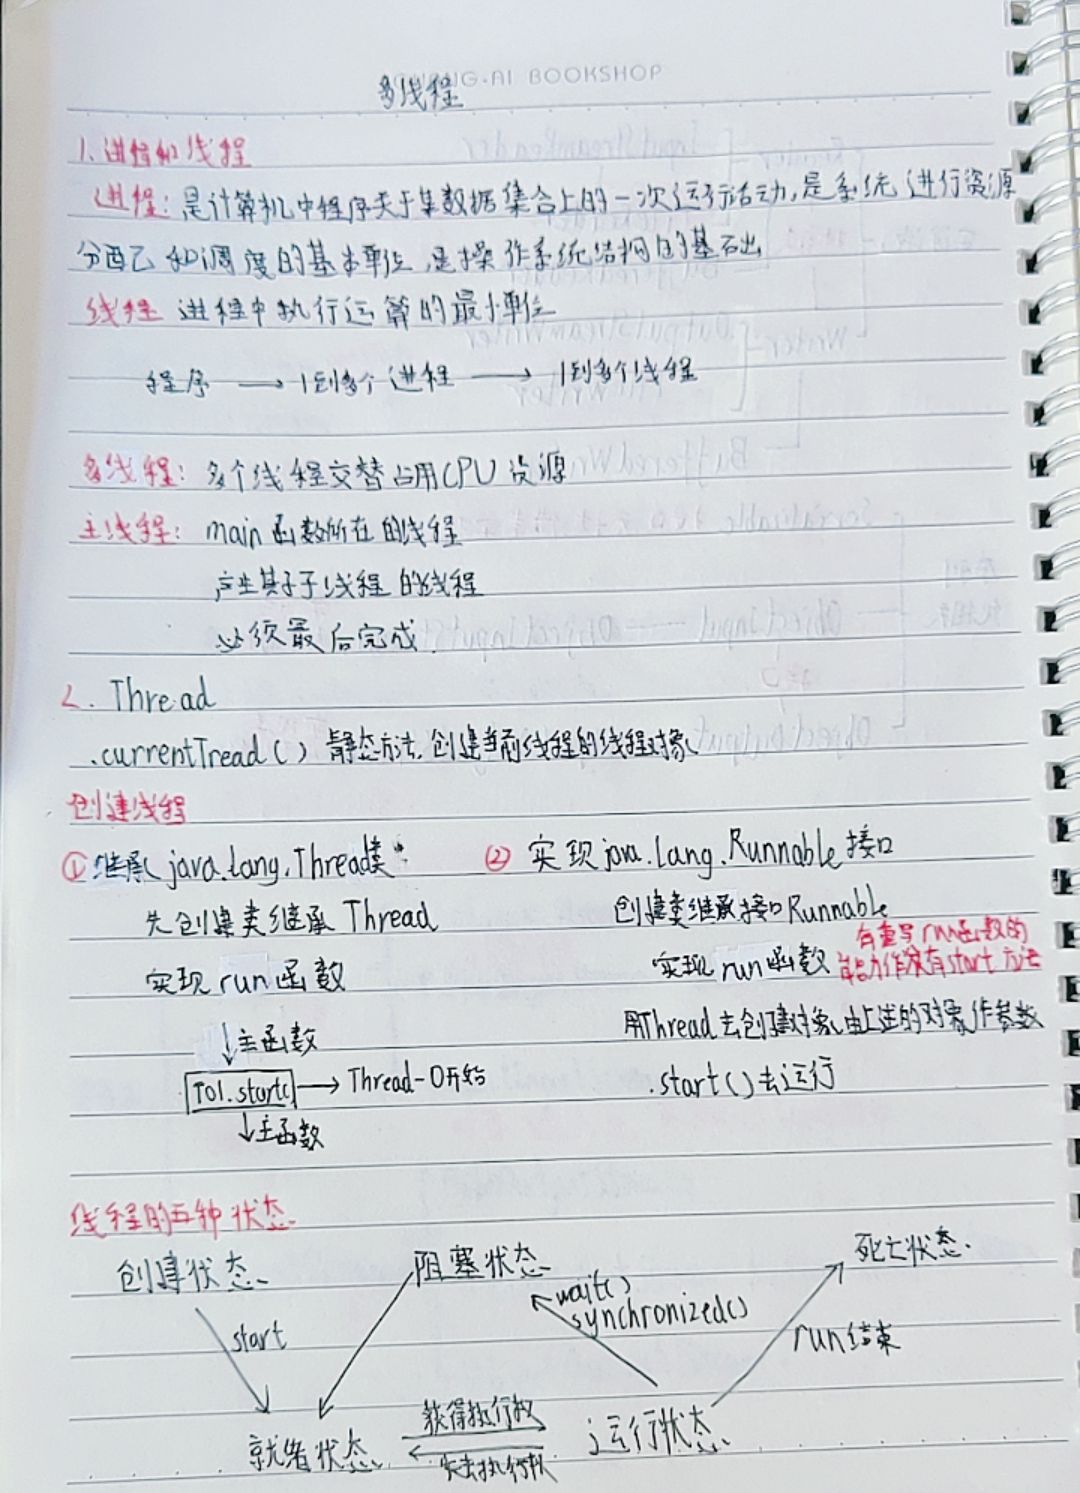 多线程
1.进程和线程
进程：是计算机中程序关于集数据集合上的一次运行活动，是系统进行资源
分配和调度的基本单位，是操作系统结构的基础
线程 进程中执行运算的最小单位
程序 → 1到多个进程 → 1到多个线程
多线程：多个线程交替占用CPU资源
主线程：main函数所在的线程
产生其子子线程的线程
必须最后完成.
2. Thread
.currentTread() 静态方法,创建当前线程的线程对象
创建线程
①继承java.lang.Thread类:
先创建类继承Thread
实现run函数
↓主函数
T01.start( → Thread-0开始
↓主函数
② 实现java.lang.Runnable接口
创建类继承接口Runnable
实现run函数
有重写run函数的
能力但没有start方法
用Thread去创建对象,由上述的对象作参数
.start()去运行
线程的五种状态
创建状态 阻塞状态 死亡状态.
start wait()
synchronized()
run结束
获得执行权
就绪状态 运行状态
失去执行权